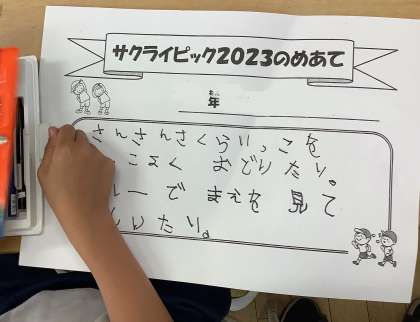 サクライピック2023のめあて
ねん
年
さんさんさくらいっこを
っこよく おどりたり。
レーで まえを 見て
たり。